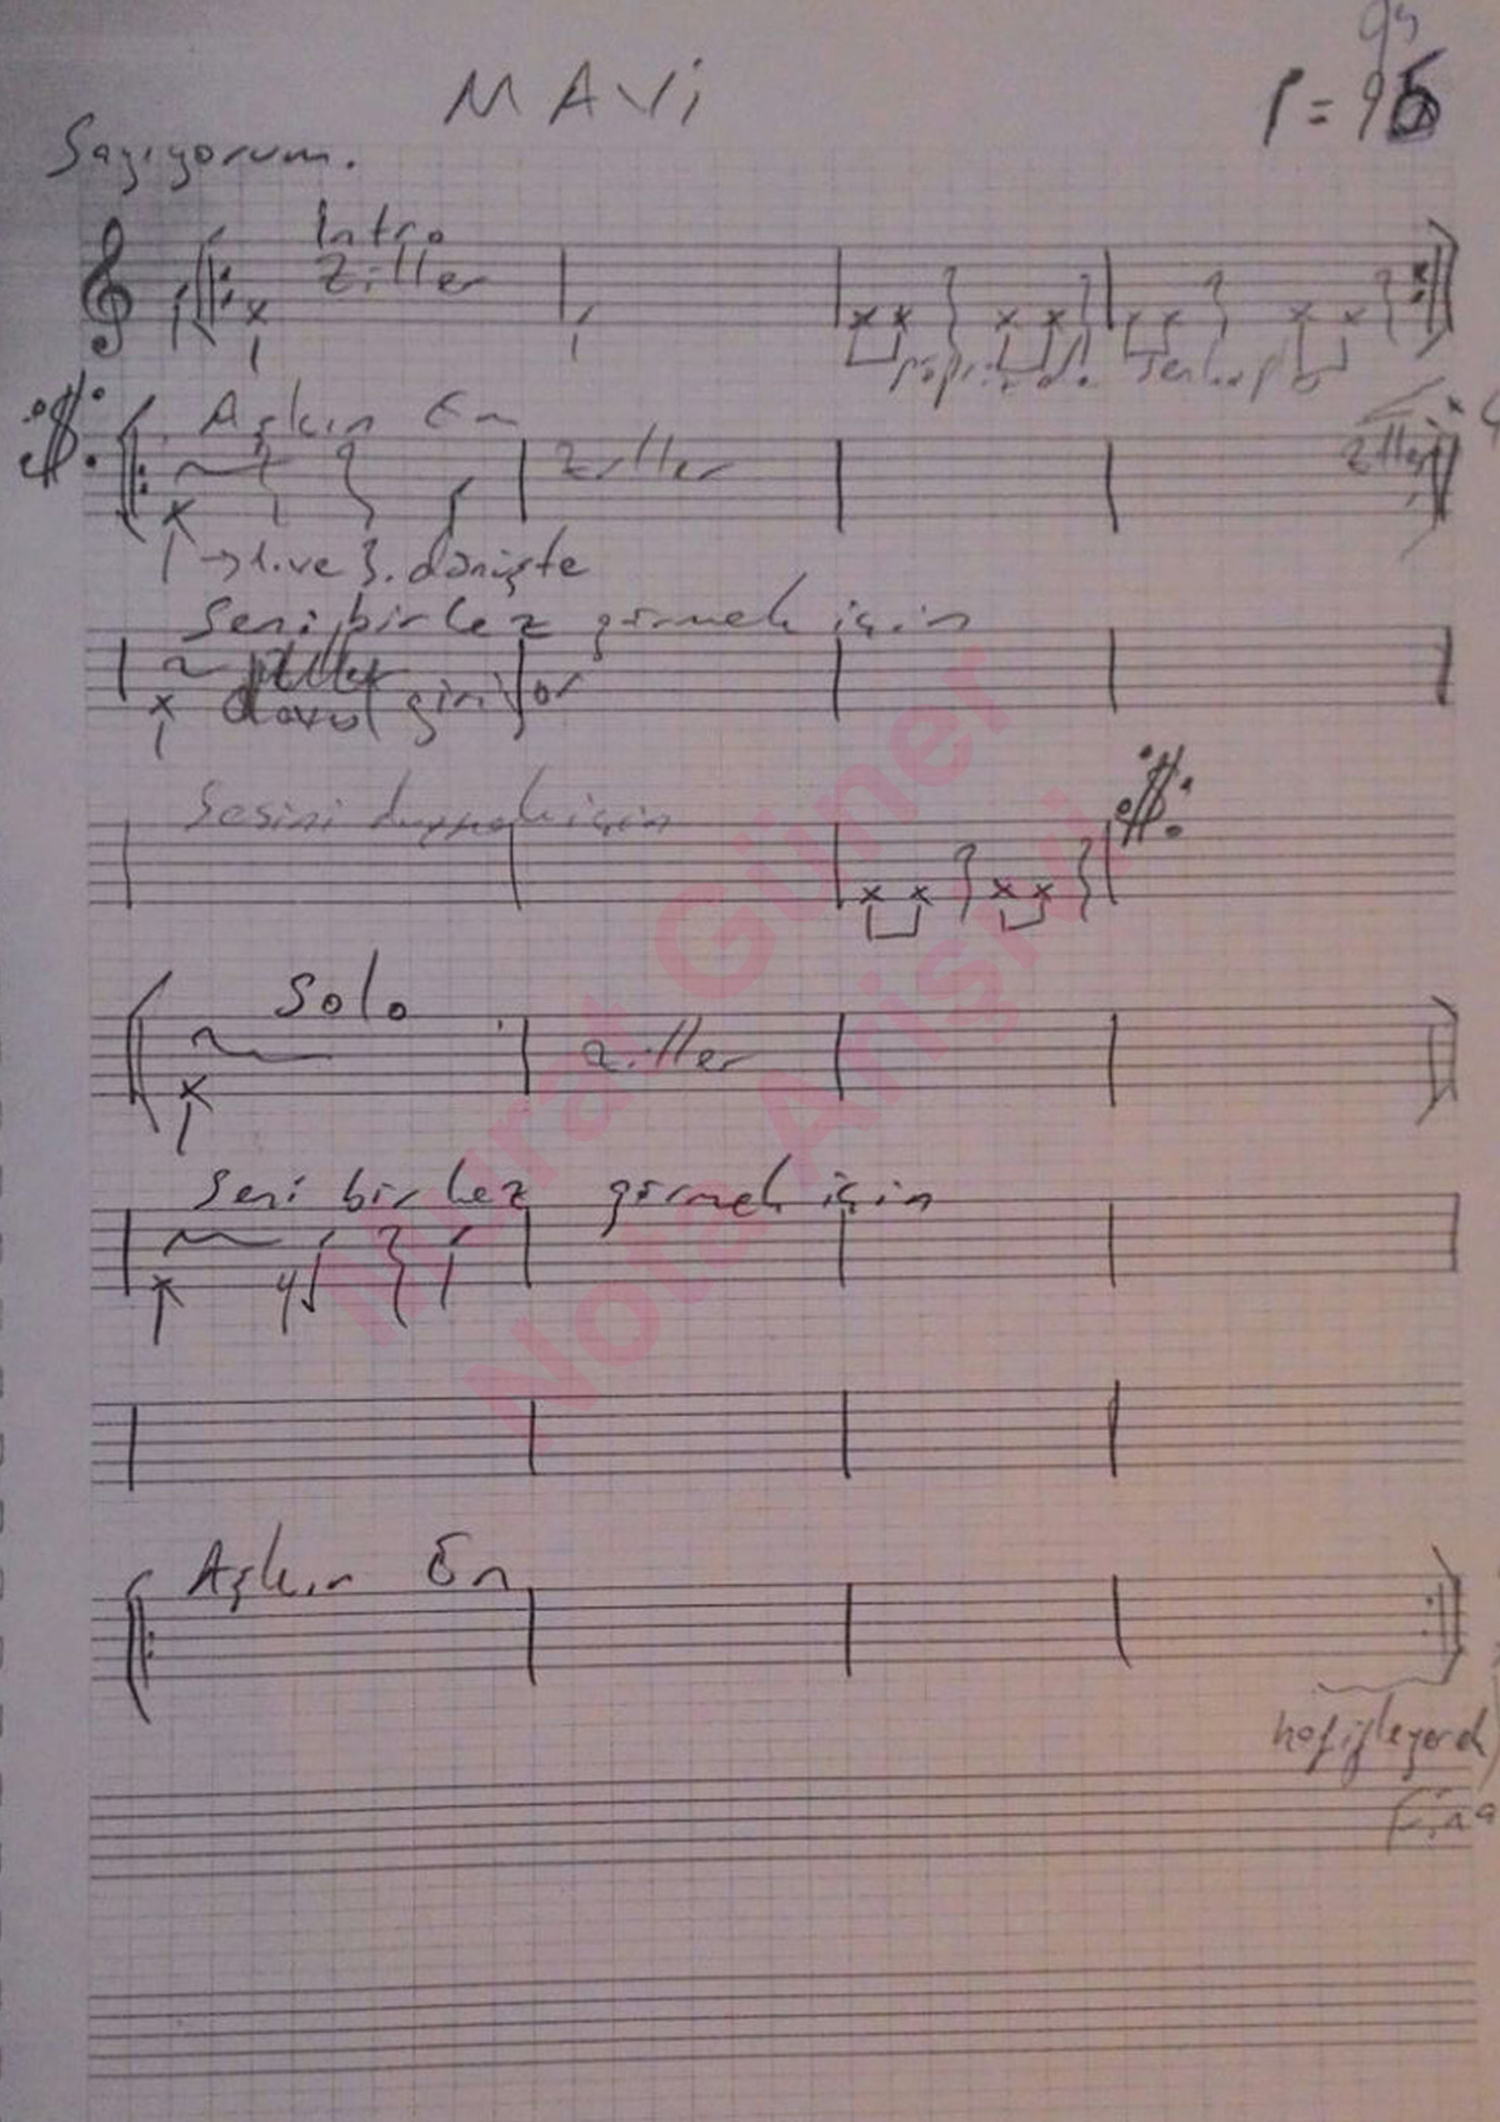 MAVi
Sayıyorum.
Intro
Ziller
Aşkın En
Ziller
→ 1. ve 3. dönüşte
Seni bir kez görmek için
davul giriyor
Sesini duymak için
Solo
Ziller
Seni bir kez görmek için
Aşkın En
hafifleyerek
Murat Güner
Nota Arişivi